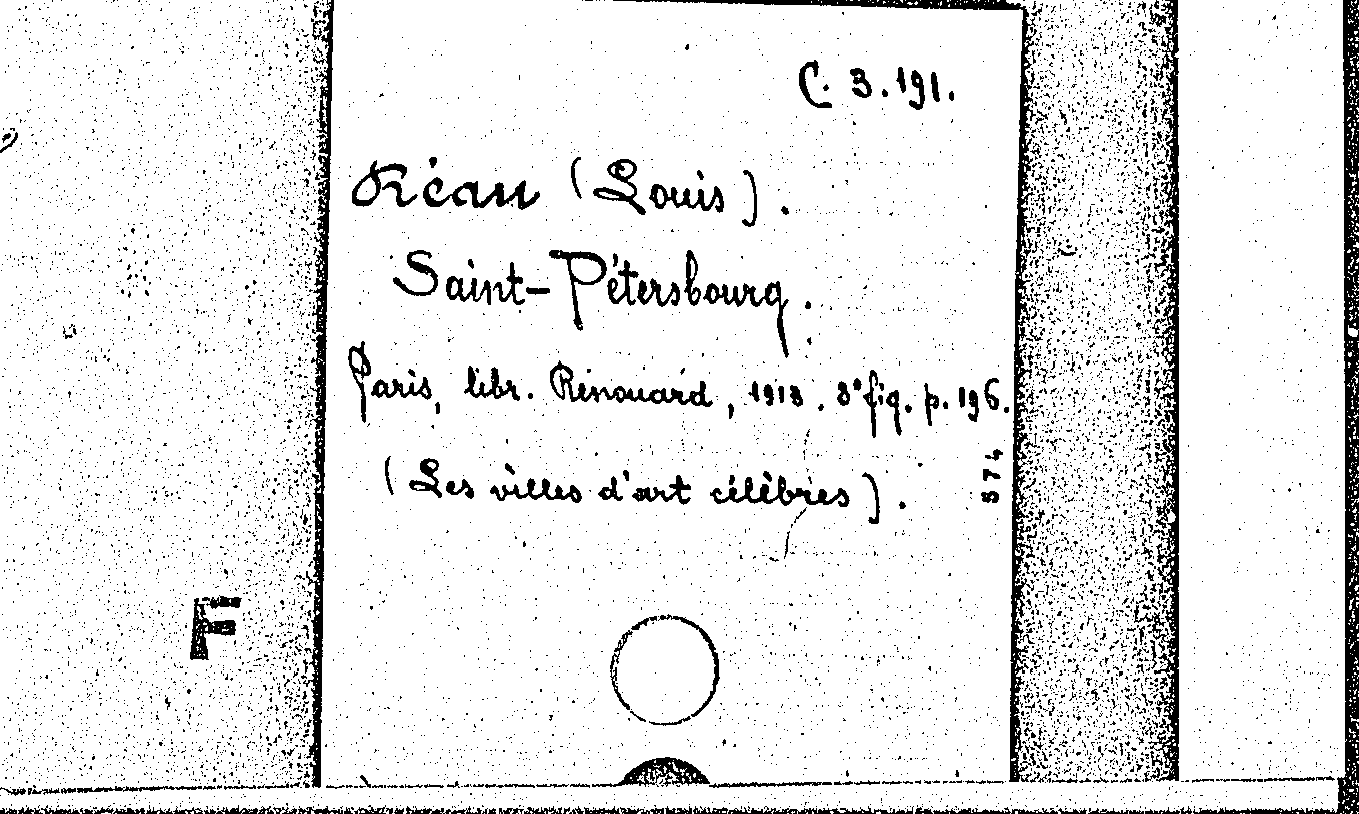 C. 3.191.
Réau (Louis).
Saint-Pétersbourg.
Paris, libr. Renouard, 1913. 8° fig. p. 196.
574
(Les villes d'art célèbres).
F